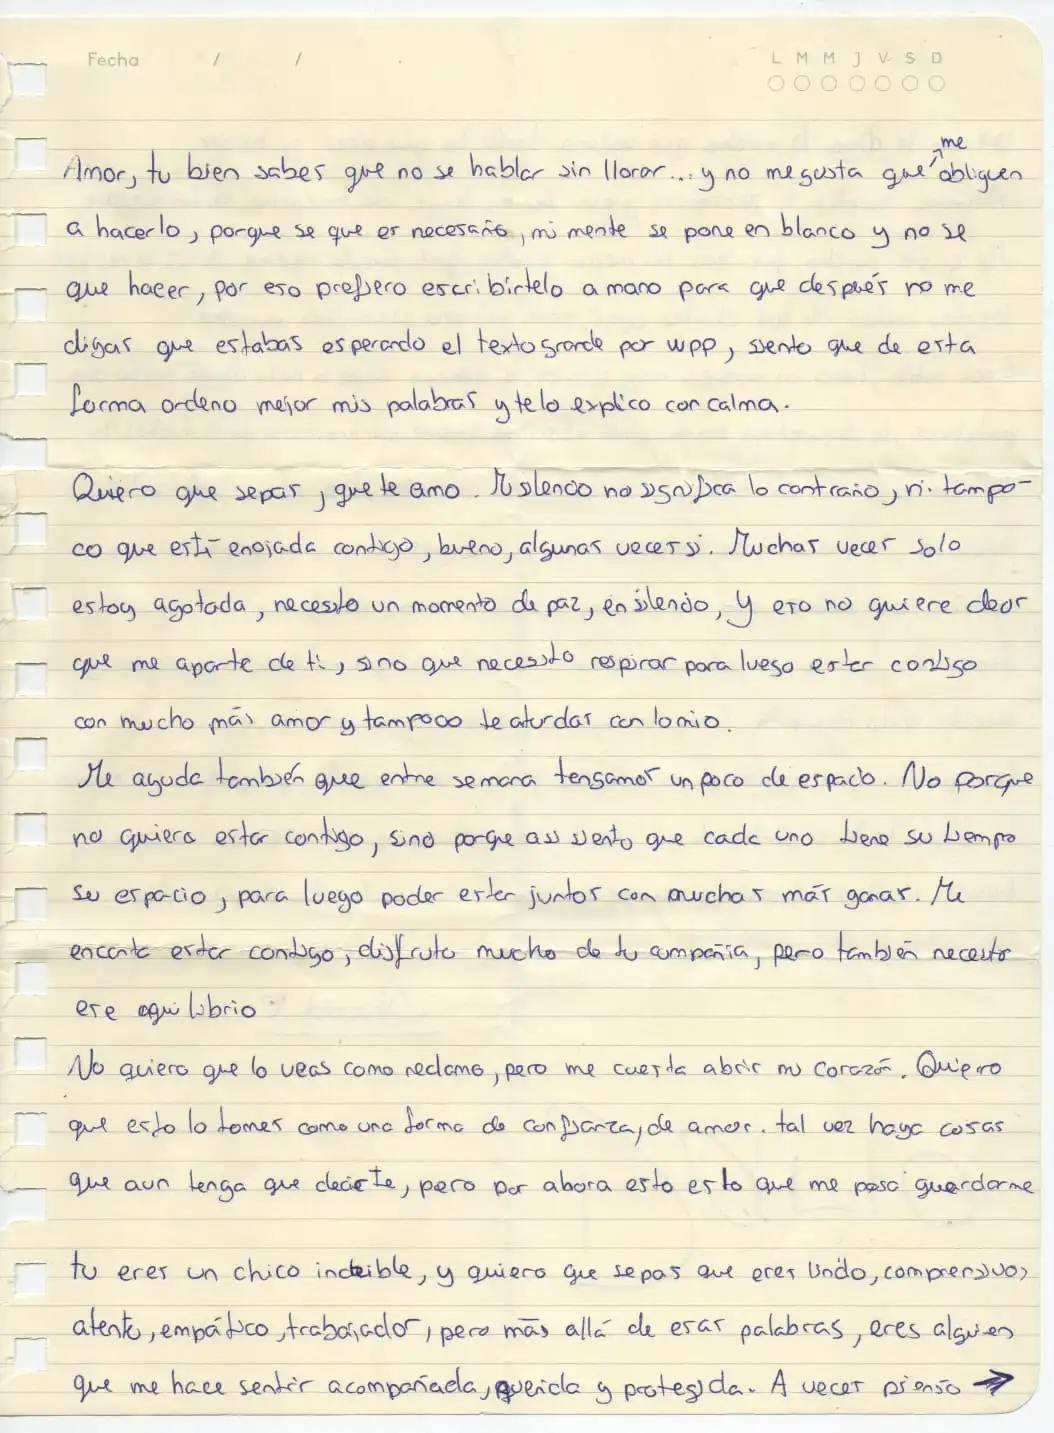 Fecha / /
L M M J V S D
me
Amor, tu bien sabes que no se hablar sin llorar... y no me gusta que obliguen
a hacerlo, porque se que es necesario, mi mente se pone en blanco y no se
que hacer, por eso prefiero escribirtelo a mano para que después no me
digas que estabas esperando el texto grande por wpp, siento que de esta
forma ordeno mejor mis palabras y te lo explico con calma.
Quiero que sepas, que te amo. Mi silencio no significa lo contrario, ni tampo-
co que esté enojada contigo, bueno, algunas veces si. Muchas veces solo
estoy agotada, necesito un momento de paz, en silencio, y eso no quiere decir
que me aparte de ti, sino que necesito respirar para luego estar contigo
con mucho más amor y tampoco te aturdas con lo mio.
Me ayuda también que entre semana tengamos un poco de espacio. No porque
no quiera estar contigo, sino porque asi siento que cada uno tiene su tiempo
su espacio, para luego poder estar juntos con muchas más ganas. Me
encanta estar contigo, disfruto mucho de tu compañia, pero también necesito
ese equilibrio.
No quiero que lo veas como reclamo, pero me cuesta abrir mi corazón. Quiero
que esto lo tomes como una forma de confianza, de amor. tal vez haya cosas
que aun tenga que decirte, pero por ahora esto es lo que me pesa guardarme
tu eres un chico increible, y quiero que sepas que eres lindo, comprensivo,
atento, empático, trabajador, pero más allá de esas palabras, eres alguien
que me hace sentir acompañada, querida y protegida. A veces pienso →